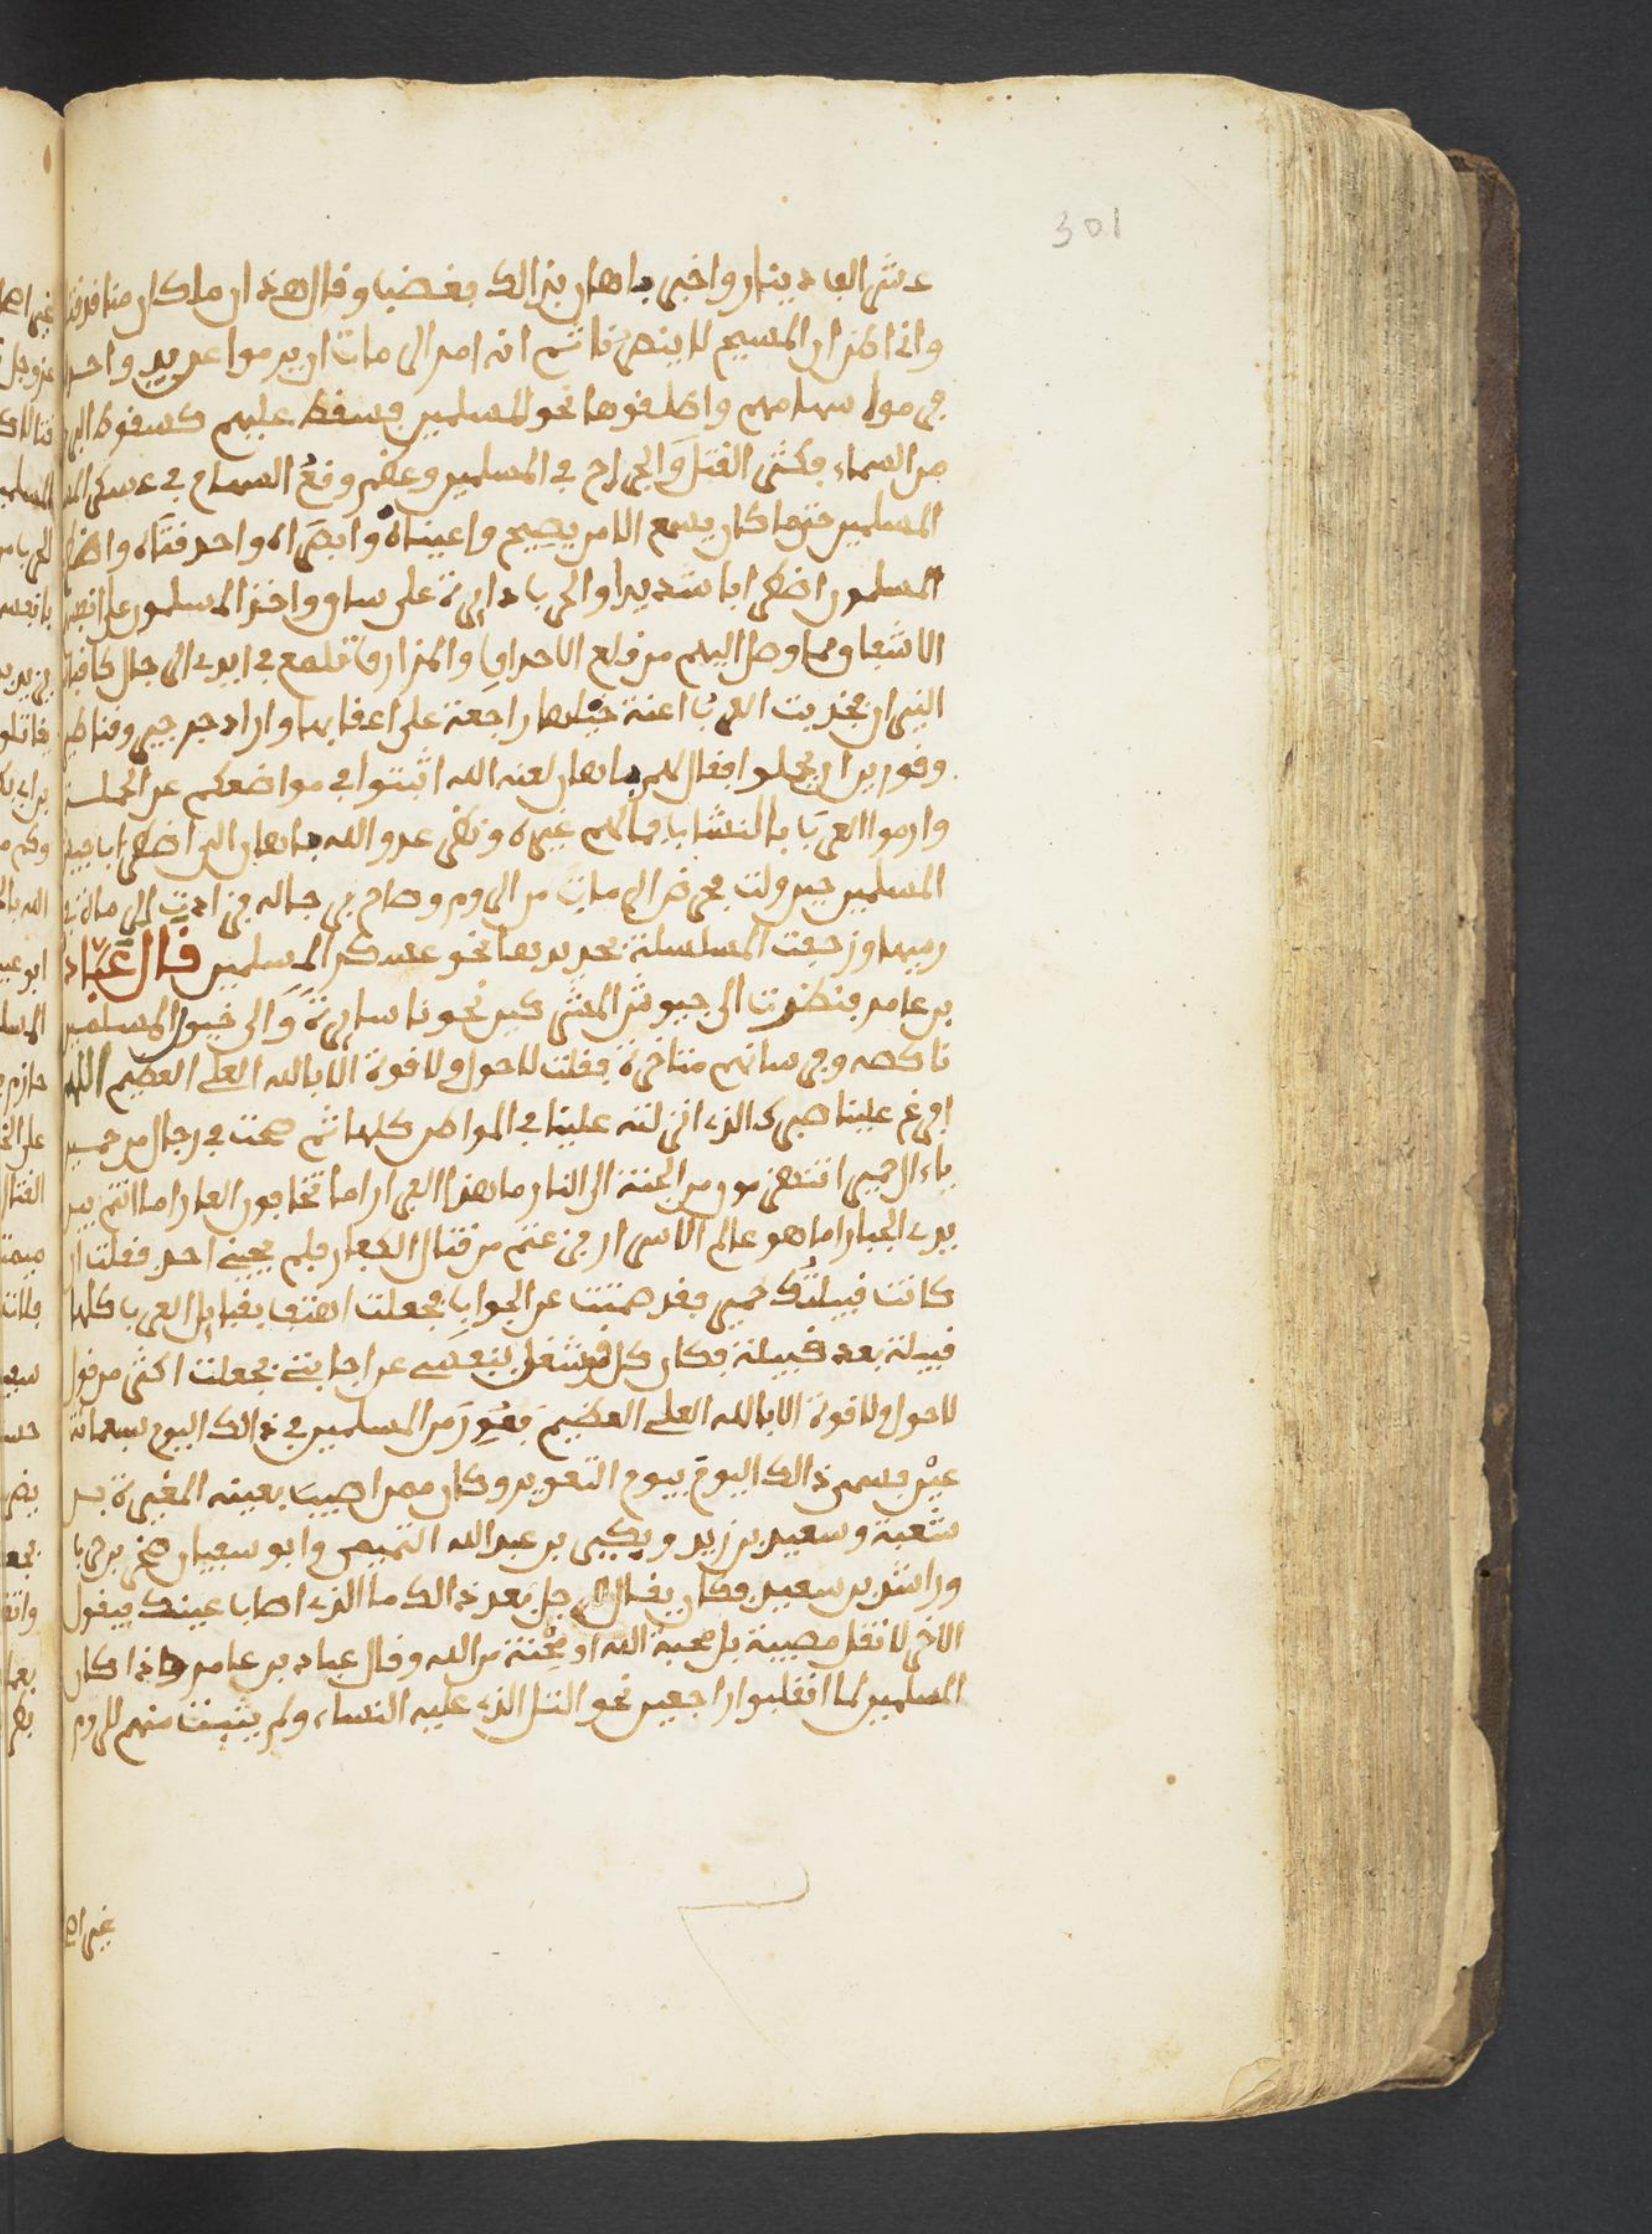 301
عشر الف دينار واخبر باهان بذالك فغضب وقال هذه ان ملكان منا قد قتلا
واني اظن ان المسيح لا ينصرنا ثم انه امر الرماة ان يرموا عن يد واحدة
فرموا سهامهم واطلقوها نحو المسلمين فسقط عليهم كسقوط البرد
من السماء فكثر القتل والجراح في المسلمين وعظم وقع السهام في عسكر
المسلمين حتى ما كان يسمع الا من يصيح واعيناه وابصراه واحدقتاه واضطرب
المسلمون اضطرابا شديدا والحرب دايرة على ساق واخذ المسلمون على انفسهم
الاشفاق مما وصل اليهم من قلع الاحداق والمزارق تلمع في ايدي الرجال كانها
النيران فجذبت العرب اعنة خيلها راجعة على اعقابها واراد جرجير وقناطر
وقورين ان يحملوا فقال لهم باهان لعنه الله اثبتوا في مواضعكم عن الحملة
وارموا العرب بالنشاب فما لهم غيره ونظر عدو الله باهان الى اضطراب جيش
المسلمين حين ولت فحرض الرماة من الروم وصاح برجاله فزادت الرماة في
رميها وزحفت المسلسلة بحديدها نحو عسكر المسلمين قال عباد
بن عامر فنظرت الى جيوش المشركين نحونا سايرة والى خيول المسلمين
ناكصه وفرسانهم متاخرة فقلت لا حول ولا قوة الا بالله العلي العظيم اللهم
افرغ علينا صبرك الذي انزلته علينا في المواطن كلها ثم صحت في رجال من حمير
يا ءال حمير اتنهزمون من الجنة الى النار ما هذا الفرار اما تخافون العار اما انتم بين
يدي الجبار اما هو عالم الاسرار فزعتم من قتال الكفار فلم يجبني احد فقلت ان
كانت قبيلتك حمير فقد صمتت عن الجواب فجعلت اهتف بقبايل العرب كلها
قبيلة بعد قبيلة فكان كل مشغل بنفسه عن اجابتي فجعلت اكثر من قول
لا حول ولا قوة الا بالله العلي العظيم فعور من المسلمين في ذالك اليوم سبعمائة
عين فسمى ذالك اليوم بيوم التعوير وكان ممن اصيب بعينه المغيرة بن
شعبة وسعيد بن زيد وبكير بن عبد الله التميمي وابو سفيان صخر بن حرب
وراشد بن سعيد فكان يقال للرجل بعد ذالك ما الذي اصاب عينك فيقول
الاخر لا تقل مصيبة بل محبة الله او محنة من الله وقال عباد بن عامر واذا كان
المسلمين لما انقلبوا راجعين نحو التل الذي عليه النساء ولم يثبت منهم للروم